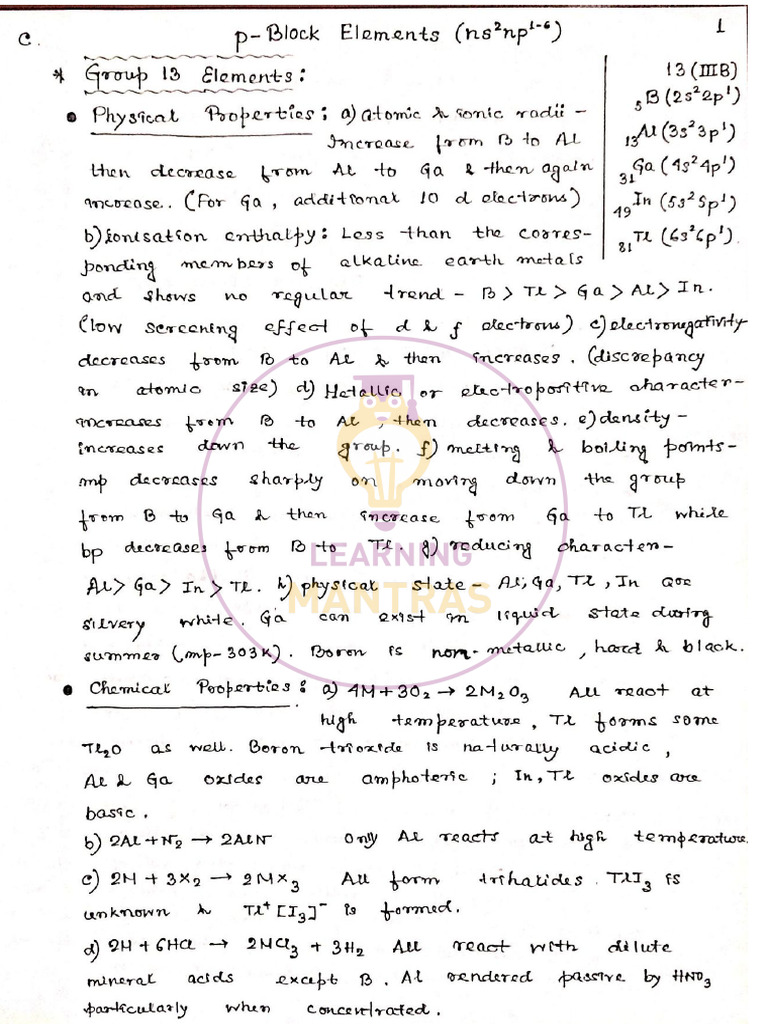 C.
p-Block Elements (ns²np¹⁻⁶)
1
* Group 13 Elements:
13 (IIIB)
₅B (2s²2p¹)
₁₃Al (3s²3p¹)
₃₁Ga (4s²4p¹)
₄₉In (5s²5p¹)
₈₁Tl (6s²6p¹)
• Physical Properties: a) atomic & ionic radii -
Increase from B to Al
then decrease from Al to Ga & then again
increase. (For Ga, additional 10 d electrons)
b) ionisation enthalpy: Less than the corres-
ponding members of alkaline earth metals
and shows no regular trend - B > Tl > Ga > Al > In.
(low screening effect of d & f electrons) c) electronegativity
decreases from B to Al & then increases. (discrepancy
in atomic size) d) Metallic or electropositive character-
increases from B to Al, then decreases. e) density -
increases down the group. f) melting & boiling points -
mp decreases sharply on moving down the group
from B to Ga & then increase from Ga to Tl while
bp decreases from B to Tl. g) reducing character -
Al > Ga > In > Tl. h) physical state - Al, Ga, Tl, In are
silvery white. Ga can exist in liquid state during
summer (mp-303K). Boron is non-metallic, hard & black.
• Chemical Properties: a) 4M + 3O₂ → 2M₂O₃ All react at
high temperature, Tl forms some
Tl₂O as well. Boron trioxide is naturally acidic,
Al & Ga oxides are amphoteric ; In, Tl oxides are
basic.
b) 2Al + N₂ → 2AlN Only Al reacts at high temperature.
c) 2M + 3X₂ → 2MX₃ All form trihalides. TlI₃ is
unknown & Tl⁺[I₃]⁻ is formed.
d) 2M + 6HCl → 2MCl₃ + 3H₂ All react with dilute
mineral acids except B. Al rendered passive by HNO₃
particularly when concentrated.
LEARNING
MANTRAS